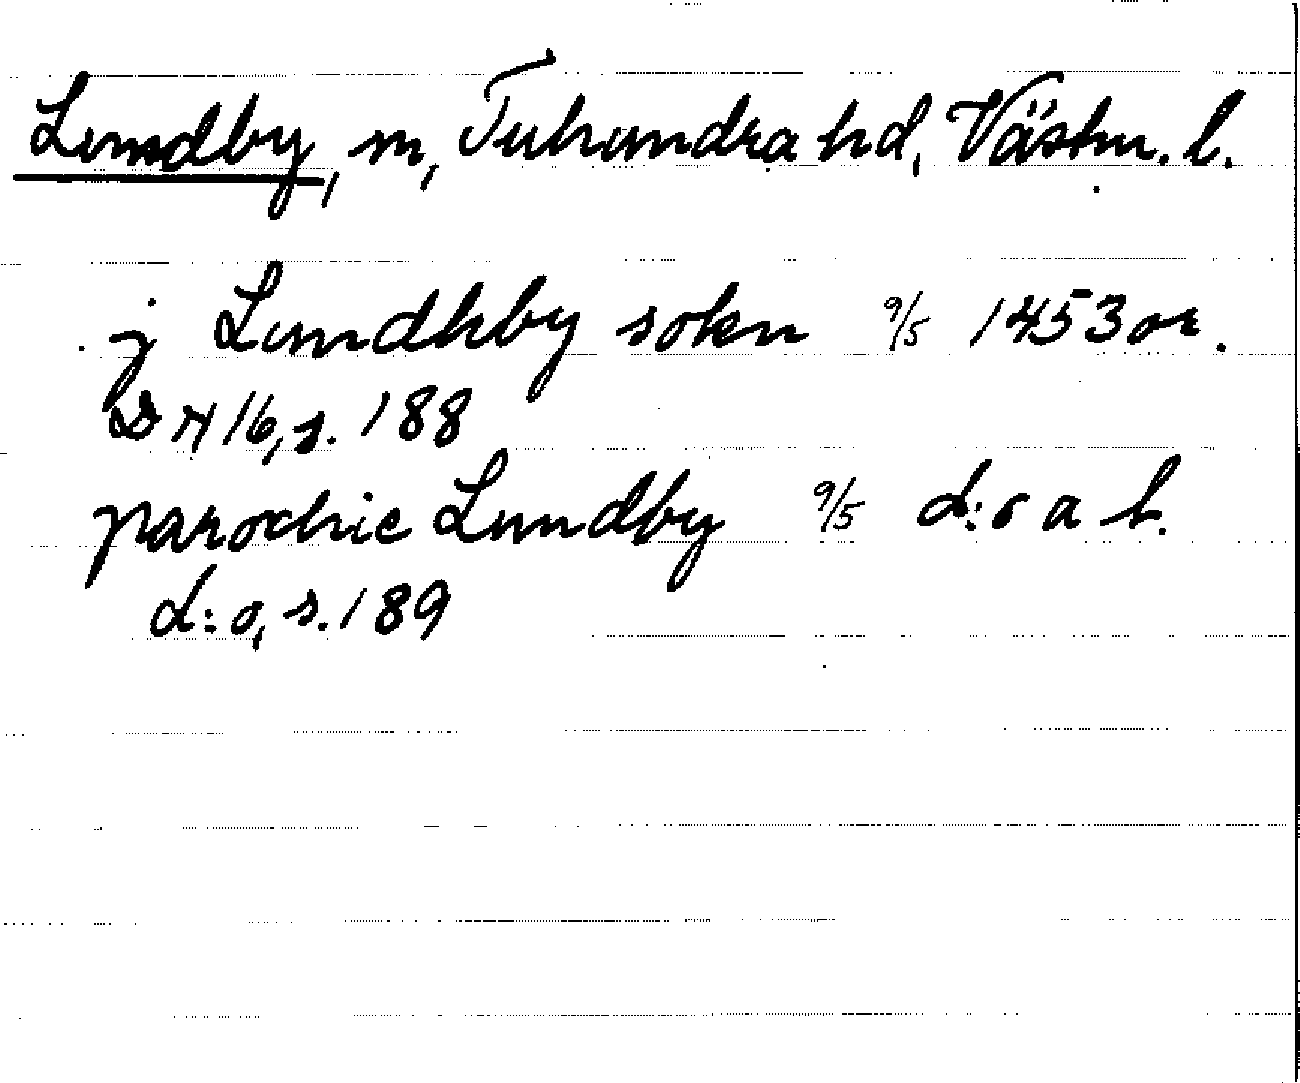 Lundby, sn, Tuhundra hd, Västm. l.
j Lundhby sokn 9/5 1453 or.
D 716, s. 188
parochie Lundby 9/5 d:o a h.
d:o, s. 189